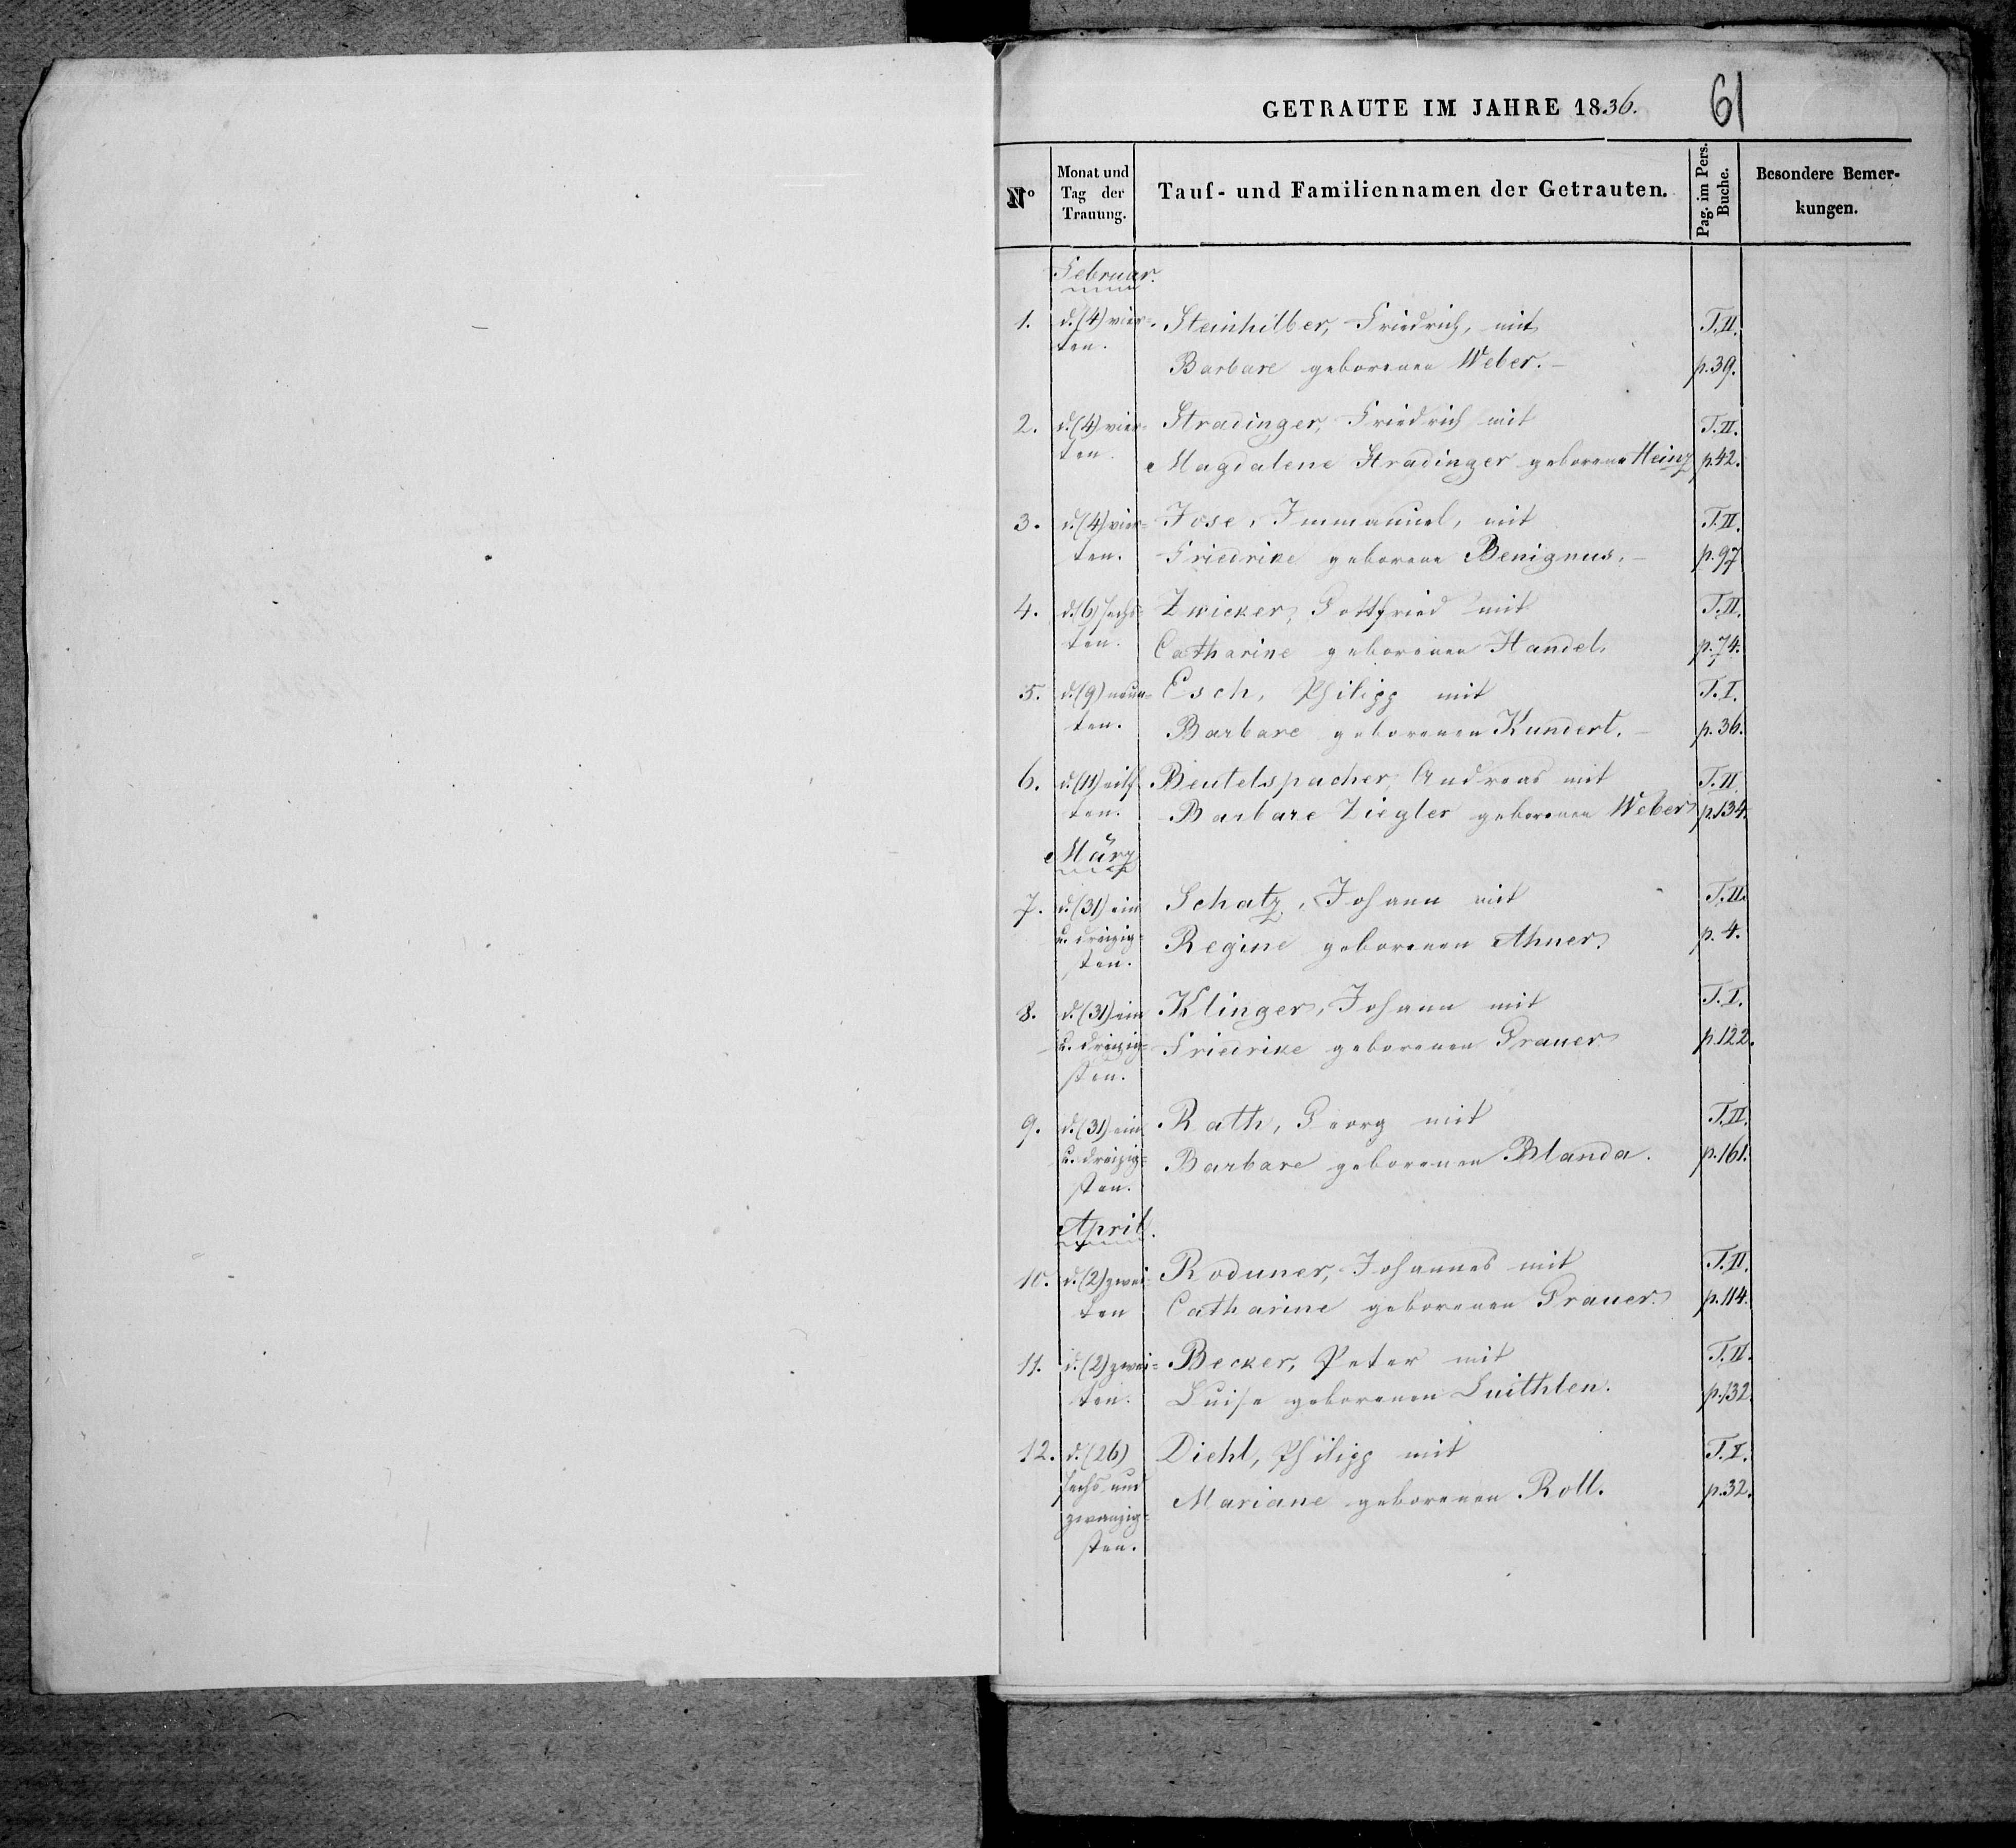 GETRAUTE IM JAHRE 1836.
61
N° Monat und Tag der Trauung. Tauf- und Familiennamen der Getrauten. Pag. im Pers. Buche. Besondere Bemerkungen.
Februar.
1. d. (4) vier- Steinhilber, Friedrich, mit T. II.
ten. Barbare geborenen Weber. – p. 39.
2. d. (4) vier- Stradinger, Friedrich mit T. II.
ten. Magdalene Stradinger geborene Heinz p. 42.
3. d. (4) vier- Jose, Immanuel, mit T. II.
ten. Friedrike geborene Benignus. – p. 97
4. d. (6) sechs- Zwicker, Gottfried mit T. II.
ten. Catharine geborenen Handel. p. 74.
5. d. (9) neun- Esch, Philipp mit T. I.
ten. Barbare geborenen Kundert. – p. 36.
6. d. (11) eilf- Beutelspacher, Andreas mit T. II.
ten. Barbare Ziegler geborenen Weber p. 134.
März
7. d. (31) ein Schatz, Johann mit T. II.
u. dreizig- Regine geborenen Ahner. p. 4.
sten.
8. d. (31) ein Klinger, Johann mit T. I.
u. dreizig- Friedrike geborenen Grauer p. 122.
sten.
9. d. (31) ein Rath, Georg mit T. II.
u. dreizig- Barbare geborenen Blanda. p. 161.
sten.
April.
10. d. (2) zwei- Roduner, Johannes mit T. II.
ten Catharine geborenen Grauer. p. 114.
11. d. (2) zwei- Becker, Peter mit T. II.
ten. Luise geborenen Luithlen. p. 132.
12. d. (26) Diehl, Philipp mit T. I.
sechs und Mariane geborenen Roll. p. 32.
zwanzig-
sten.